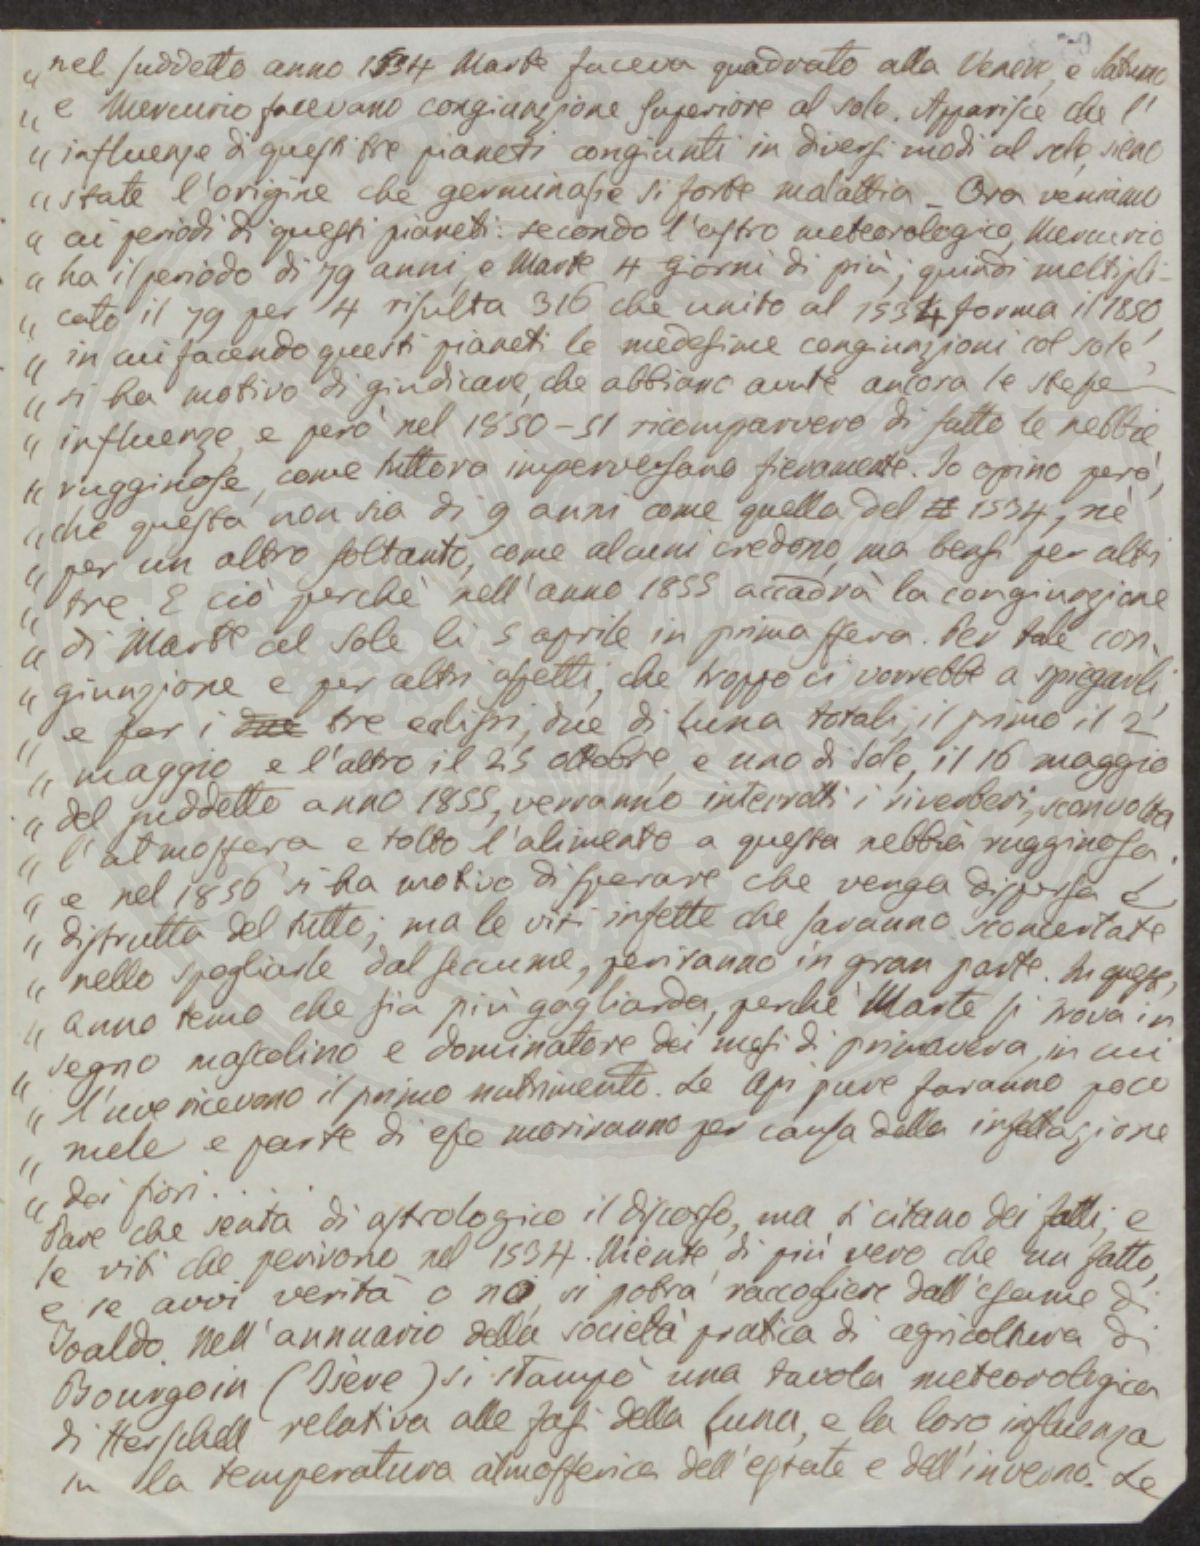 „ nel suddetto anno 1534 Marte faceva quadrato alla Venere, e Saturno
„ e Mercurio facevano congiunzione superiore al sole. Apparisce che l'
„ influenze di questi tre pianeti congiunti in diversi modi al sole, sieno
„ state l'origine che germinasse si forte malattia _ Ora veniamo
„ ai periodi di questi pianeti: secondo l'astro meteorologico, Mercurio
„ ha il periodo di 79 anni, e Marte 4 giorni di più; quindi moltipli-
„ cato il 79 per 4 risulta 316 che unito al 1534 forma il 1850,
„ in cui facendo questi pianeti le medesime congiunzioni col sole,
„ si ha motivo di giudicare, che abbiano avute ancora le stesse
„ influenze, e però nel 1850-51 ricomparvero di fatto le nebbie
„ rugginose, come tuttora imperversano fieramente. Io opino però,
„ che questa non sia di 9 anni come quella del 1534, nè
„ per un altro soltanto, come alcuni credono, ma bensi per altri
„ tre. E ciò perchè nell'anno 1855 accadrà la congiunzione
„ di Marte al Sole li 5 aprile in prima sfera. Per tale con-
„ giunzione e per altri aspetti, che troppo ci vorrebbe a spiegarli,
„ e per i due tre eclissi, due di Luna totali, il primo il 2
„ maggio, e l'altro il 25 ottobre, e uno di Sole, il 16 maggio
„ del suddetto anno 1855, verranno interrotti i riverberi, sconvolta
„ l'atmosfera e tolto l'alimento a questa nebbia rugginosa,
„ e nel 1856 si ha motivo di sperare che venga dispersa e
„ distrutta del tutto; ma le viti infette che saranno sconcertate
„ nello spogliarle dal seccume, periranno in gran parte. In quest'
„ anno temo che sia più gagliarda, perchè Marte si trova in
„ segno mascolino e dominatore dei mesi di primavera, in cui
„ l'uve ricevono il primo nutrimento. Le Api pure faranno poco
„ mele e parte di esse moriranno per causa della infettazione
„ dei fiori. . . .
Pare che senta di astrologico il discorso, ma si citano dei fatti; e
le viti che perirono nel 1534. Niente di più vero che un fatto,
e se avvi verità o no, si potrà raccogliere dall'esame di
Toaldo. Nell'annuario della società pratica di agricoltura di
Bourgoin (Isère) si stampò una tavola meteorologica
di Herschell relativa alle fasi della Luna, e la loro influenza
in la temperatura atmosferica dell'estate e dell'inverno. Le